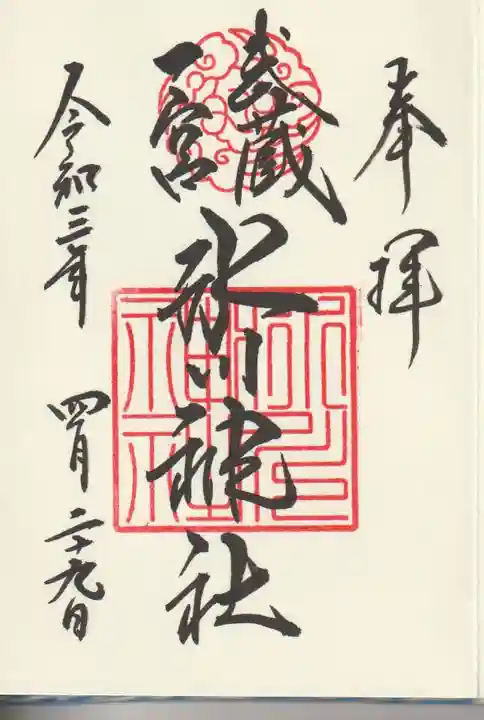 奉拝
武蔵
一宮
氷川神社
令和三年
四月二十九日
氷川
神社